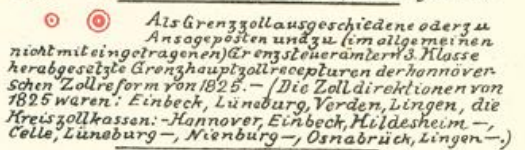 Als Grenzzoll ausgeschiedene oder zu
Ansageposten und zu (im allgemeinen
nicht mit eingetragenen) Grenzsteuerämtern 3. Klasse
herabgesetzte Grenzhauptzollrecepturen der hannöver-
schen Zollreform von 1825. — (Die Zolldirektionen von
1825 waren: Einbeck, Lüneburg, Verden, Lingen, die
Kreiszollkassen: - Hannover, Einbeck, Hildesheim —,
Celle, Lüneburg —, Nienburg —, Osnabrück, Lingen —.)